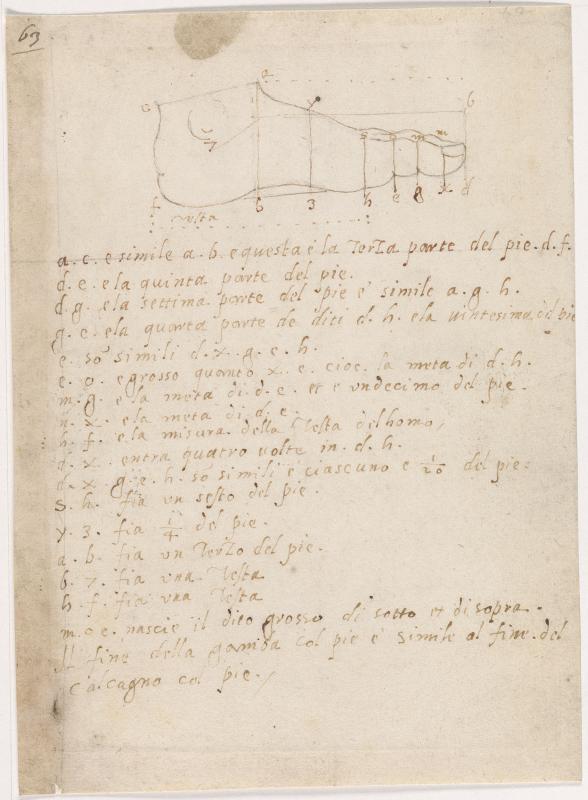 63
a
c
y
b
s
o
m
n
7
f
testa
b
3
h
e
g
x
d
a. c. e simile a. b. e questa e la Terza parte del pie. d. f.
d. e. e la quinta parte del pie.
d. g. e la settima parte del pie e simile a. g. h.
g. e. e la quarta parte de diti d. h. e la vintesima del pie
e. so simili d. x. g. e. h.
e. o. e grosso quanto x. e. cioe. la meta di d. h.
m. g. e la meta di. d. e. et e undecimo del pie.
n. x. e la meta di d. e.
h. f. e la misura della Testa delhomo,
d. x. entra quatro volte in. d. h.
d. x. g. e. h. so simili e ciascuno e 1/20 del pie:
s. h. fia un sesto del pie.
y. 3. fia 1/4 del pie.
a. b. fia un Terzo del pie.
b. 7. fia una Testa
h. f. fia una Testa
m. o e. nascie il dito grosso di sotto et di sopra.
Il fine della gamba col pie e simile al fine. del
calcagno col pie./